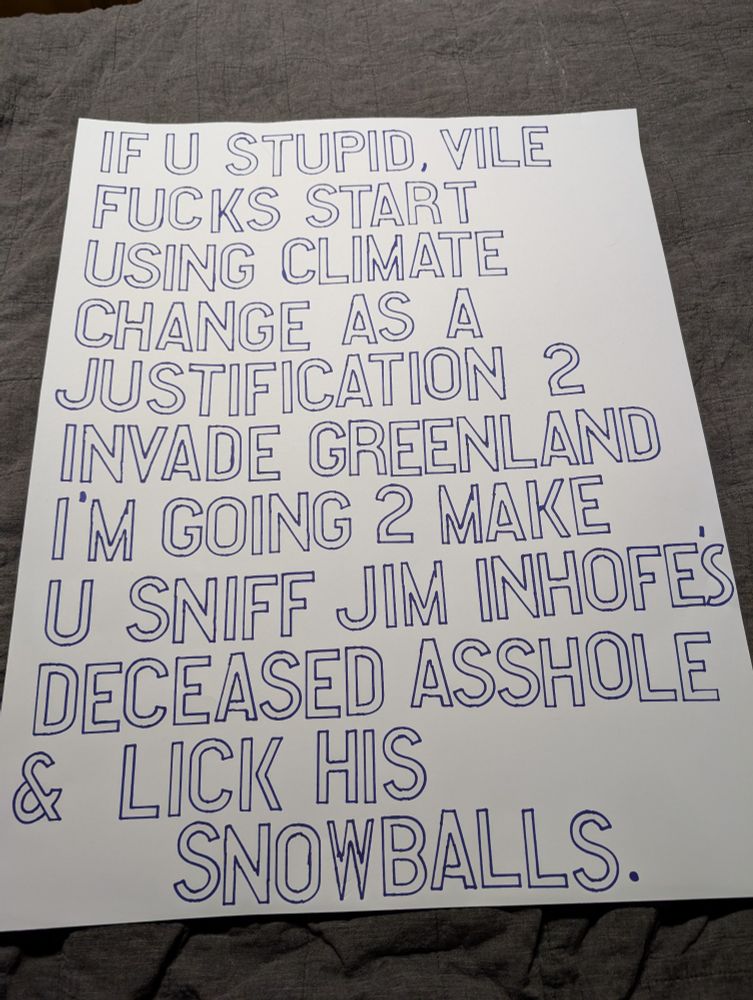 IF U STUPID, VILE
FUCKS START
USING CLIMATE
CHANGE AS A
JUSTIFICATION 2
INVADE GREENLAND
I'M GOING 2 MAKE
U SNIFF JIM INHOFE'S
DECEASED ASSHOLE
& LICK HIS
SNOWBALLS.